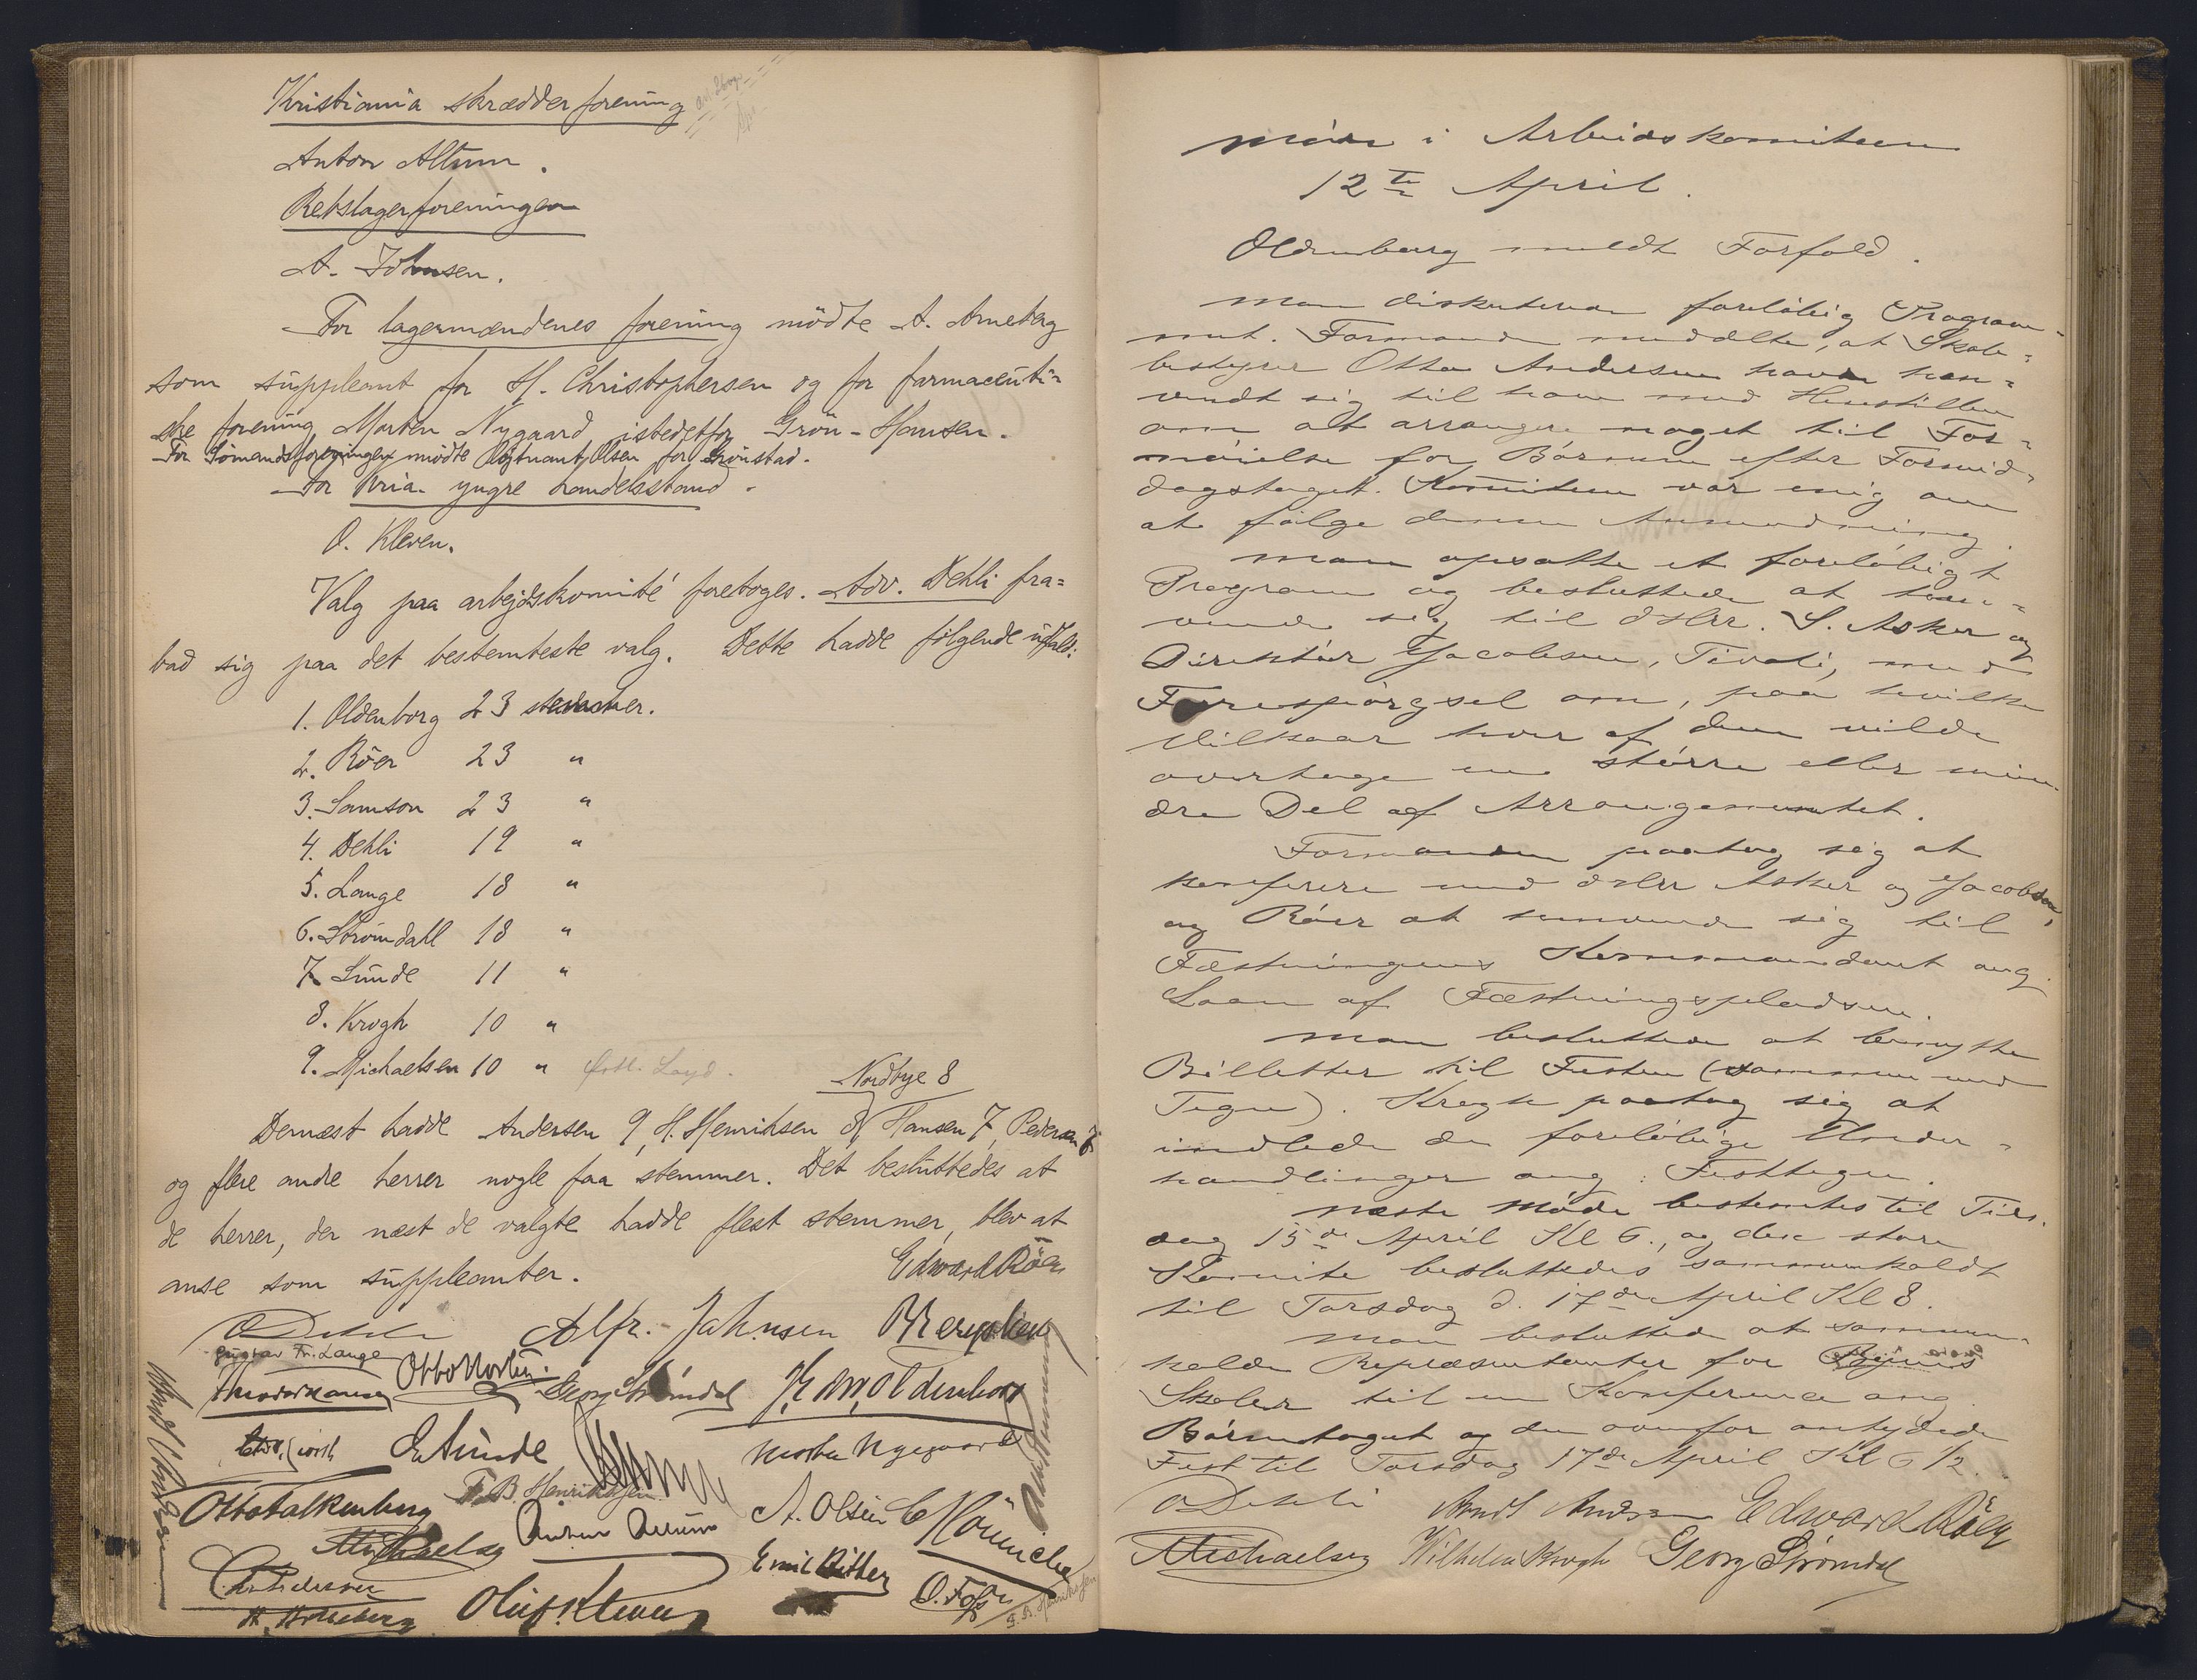 Kristiania skrædderforening
Anton Altum.
Rebslagerforeningen
A. Johnsen.
For lagermændenes forening mödte A. Arneberg
som suppleant for H. Christophersen og for farmaceuti=
ske forening Morten Nygaard istedetfor Grön-Hansen.
For Sömandsforeningen mödte Löjtnant Olsen for Grönstad.
For Kria. yngre handelsstand.
O. Kleven.
Valg paa arbejdskomité foretoges. Adv. Dehli fra=
bad sig paa det bestemteste valg. Dette hadde fölgende udfald:
1. Oldenborg 23 stemmer.
2. Röer 23 "
3. Samson 23 "
4. Dehli 19 "
5. Lange 18 "
6. Strömdahl 18 "
7. Sunde 11 "
8. Krogh 10 "
9. Michaelsen 10 "
Nordbye 8
Dernæst hadde Andersen 9, H. Henriksen 8 Hansen 7, Pedersen 7
og flere andre herrer nogle faa stemmer. Det besluttedes at
de herrer, der næst de valgte hadde flest stemmer, blev at
anse som suppleanter.
Edward Röer
O Dehli Alfr. Johnsen
Gustav Fr. Lange
Theodor Hansen Otto Georg Strömdal H. M. Oldenborg
E. Sunde Morten Nygaard
F. B. Henriksen
Otto Falkenberg Anton Altum A. Olsen
AMichaelsen Emil
Chr. Pedersen
A. Arneberg Oluf Kleven O. Foss
F. B. Henriksen
Möde i Arbeidskomiteen
12te April.
Oldenborg meldt Forfald.
Man diskuterede foreløbig Program-
met. Formanden meddelte, at Skole-
bestyrer Otto Andersen havde hen-
vendt sig til ham med Henstillen
om at arrangere noget til For-
nøielse for Börnene efter Formid-
dagstoget. Komiteen var enig om
at følge denne Anmodning.
Man opsatte et foreløbigt
Program og besluttede at hen-
vende sig til dHrr. S. Asker og
Direktør Jacobsen, Tivoli, med
Forespørgsel om, paa hvilke
Vilkaar hver af dem vilde
overtage en større eller min-
dre Del af Arrangementet.
Formanden paatog sig at
konferere med dHrr Asker og Jacobsen,
og Röer at henvende sig til
Fæstningens Kommandant ang.
Laan af Fæstningspladsen.
Man besluttede at benytte
Billetter til Festen (sammen med
Tegn). Krogh paatog sig at
indlede de foreløbige Under-
handlinger ang. Festtegn.
Næste Møde bestemtes til Tirs-
dag 15de April Kl 6., og den store
Komite besluttedes sammenkaldt
til Torsdag d. 17de April Kl 8.
Man besluttede at sammen-
kalde Repræsentanter for Byens
Skoler til en Konference ang.
Börnetoget og den ovenfor antydede
Fest til Torsdag 17de April Kl 6 1/2.
O Dehli Arndt Andersen Edward Röer
AMichaelsen Wilhelm Krogh Georg Strømdal